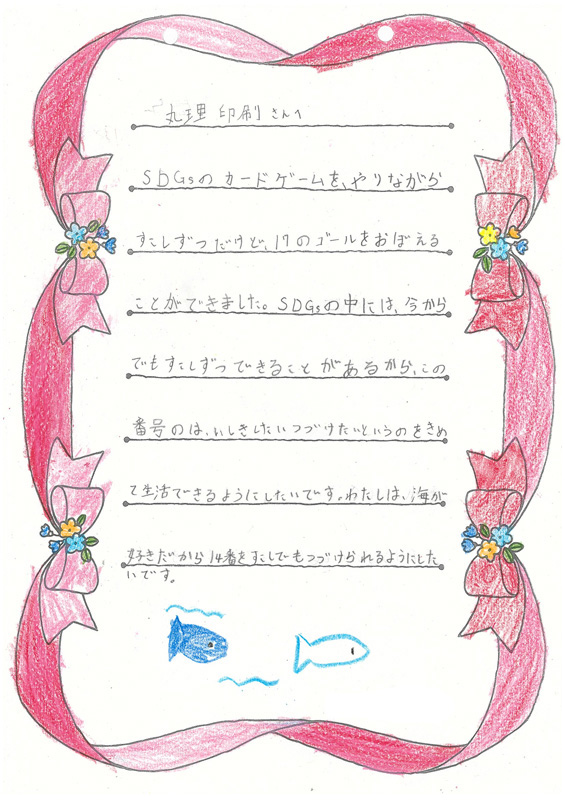 丸理印刷さんへ
SDGsのカードゲームを、やりながら
すこしずつだけど、17のゴールをおぼえる
ことができました。SDGsの中には、今から
でもすこしずつできることがあるから、この
番号のは、いしきしたいつづけたいというのをきめ
て生活できるようにしたいです。わたしは、海が
好きだから14番をすこしでもつづけられるようにした
いです。